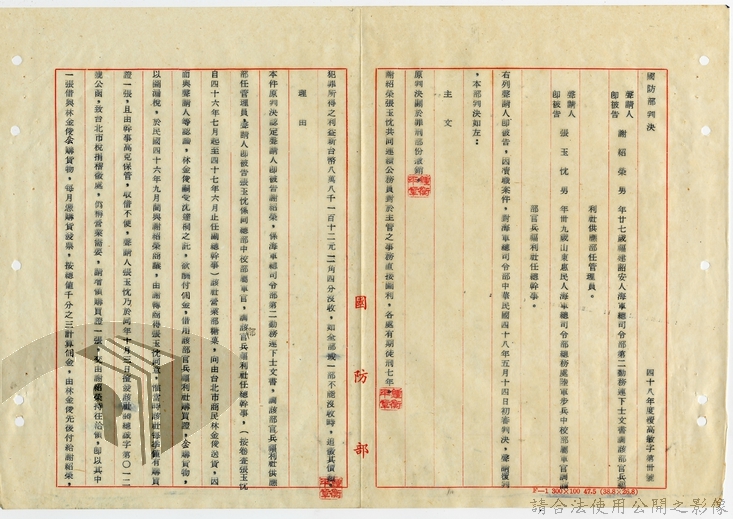 國防部判決
四十八年度覆高敏字第卅號
聲請人
即被告
謝紹榮 男 年廿七歲福建詔安人海軍總司令部第二勤務連下士文書調該部官兵福
利社供應部任管理員。
聲請人
即被告
張玉忱 男 年卅九歲山東惠民人海軍總司令部總務處陸軍步兵中校部屬軍官調
部官兵福利社任總幹事。
右列聲請人即被告,因瀆職案件,對海軍總司令部中華民國四十八年五月十四日初審判決,聲請覆判
,本部判決如左:
主文
原判決關於罪刑部份撤銷。
謝紹榮張玉忱共同連續公務員對於主管之事務直接圖利,各處有期徒刑七年,
犯罪所得之利益新台幣八萬八千一百十二元二角四分沒收,如全部或一部不能沒收時,追徵其價額。
理由
本件原判決認定聲請人即被告謝紹榮,係海軍總司令部第二勤務連下士文書,調該部官兵福利社供應
部任管理員,聲請人即被告張玉忱係同總部中校部屬軍官,調該部官兵福利社任總幹事,(按卷查張玉忱
自四十六年七月起至四十七年六月止任副總幹事)該社營業部糖菓,向由台北市商民林金俊送貨,因
而與聲請人等認識,林金俊
以圖漏稅,於民國四十六年九月間與謝紹榮商議,由謝轉商得張玉忱同意,
證一張,且由幹事高克保管,取借不便,聲請人張玉忱乃於同年十月二日擅發該社福總誠字第〇一二
號公函,致台北市稅捐稽徵處,偽稱營業需要,請增領購買證一張,交由謝紹榮持往洽領,即以其中
一張借與林金俊套購貨物,每月憑購買證票,按總值千分之三計算佣金,由林金俊先後付給謝紹榮,
國防部
F—1 300×100 47.5 (38.8×26.8)
請合法使用公開之影像